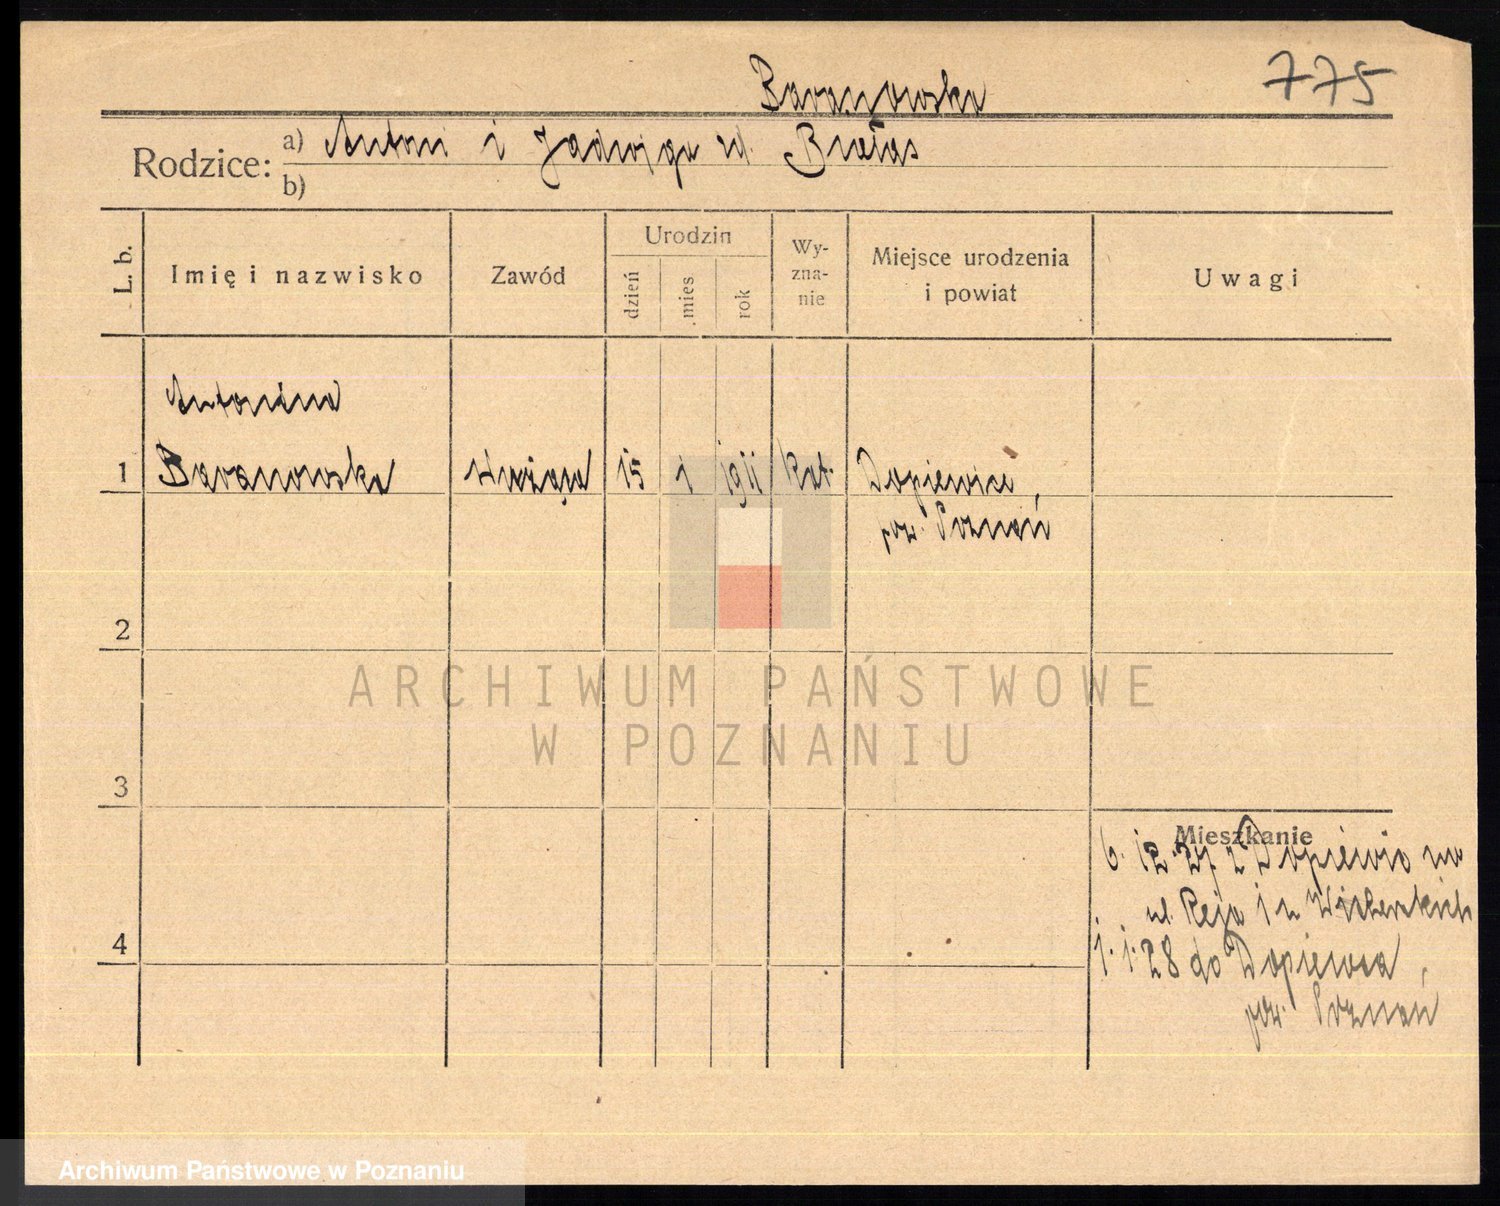 775
Baranowska
Rodzice: a) Antoni i Jadwiga zd. Białas
b)
L. b.
Imię i nazwisko
Zawód
Urodzin
dzień
mies.
rok
Wy-
zna-
nie
Miejsce urodzenia
i powiat
Uwagi
Antonina
1 Baranowska służąca 15 1 1911 kat. Dopiewice,
pow. Poznań
2
3
4
Mieszkanie
6. 12. 27 z Dopiewic na
ul. Reja 1 u
1. 1. 28 do Dopiewca,
pow. Poznań
ARCHIWUM PAŃSTWOWE
W POZNANIU
Archiwum Państwowe w Poznaniu